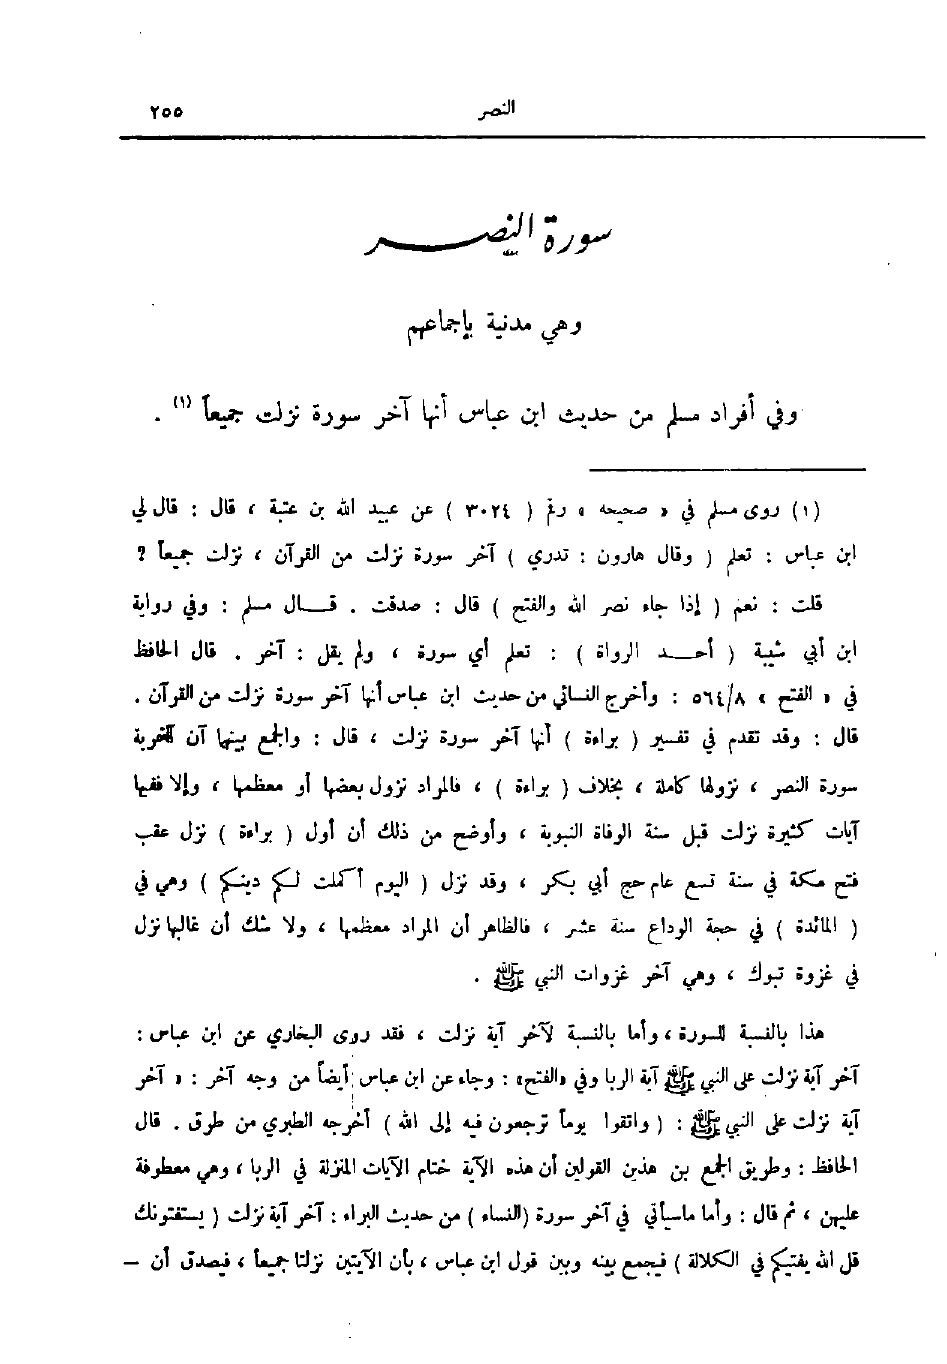 النصر ٢٥٥
سورة النصر
وهي مدنية بإجماعهم
وفي أفراد مسلم من حديث ابن عباس أنها آخر سورة نزلت جميعاً (١) .
(١) روى مسلم في « صحيحه » رقم ( ٣٠٢٤ ) عن عبيد الله بن عتبة ، قال : قال لي
ابن عباس : تعلم ( وقال هارون : تدري ) آخر سورة نزلت من القرآن ، نزلت جميعاً ؟
قلت : نعم ( إذا جاء نصر الله والفتح ) قال : صدقت . قـــال مسلم : وفي رواية
ابن أبي شيبة ( أحـــد الرواة ) : تعلم أي سورة ، ولم يقل : آخر . قال الحافظ
في « الفتح » ٥٦٤/٨ : وأخرج النسائي من حديث ابن عباس أنها آخر سورة نزلت من القرآن .
قال : وقد تقدم في تفسير ( براءة ) أنها آخر سورة نزلت ، قال : والجمع بينها أن آخرية
سورة النصر ، نزولها كاملة ، بخلاف ( براءة ) ، فالمراد نزول بعضها أو معظمها ، وإلا ففيها
آيات كثيرة نزلت قبل سنة الوفاة النبوية ، وأوضح من ذلك أن أول ( براءة ) نزل عقب
فتح مكة في سنة تسع عام حج أبي بكر ، وقد نزل ( اليوم أكملت لكم دينكم ) وهي في
( المائدة ) في حجة الوداع سنة عشر ، فالظاهر أن المراد معظمها ، ولا شك أن غالبها نزل
في غزوة تبوك ، وهي آخر غزوات النبي ﷺ .
هذا بالنسبة للسورة ، وأما بالنسبة لآخر آية نزلت ، فقد روى البخاري عن ابن عباس :
آخر آية نزلت على النبي ﷺ آية الربا وفي «الفتح» : وجاء عن ابن عباس أيضاً من وجه آخر : « آخر
آية نزلت على النبي ﷺ : ( واتقوا يوماً ترجعون فيه إلى الله ) أخرجه الطبري من طرق . قال
الحافظ : وطريق الجمع بن هذين القولين أن هذه الآية ختام الآيات المنزلة في الربا ، وهي معطوفة
عليهن ، ثم قال : وأما ماسيأتي في آخر سورة (النساء ) من حديث البراء : آخر آية نزلت ( يستفتونك
قل الله يفتيكم في الكلالة ) فيجمع بينه وبين قول ابن عباس ، بأن الآيتين نزلتا جميعاً ، فيصدق أن –